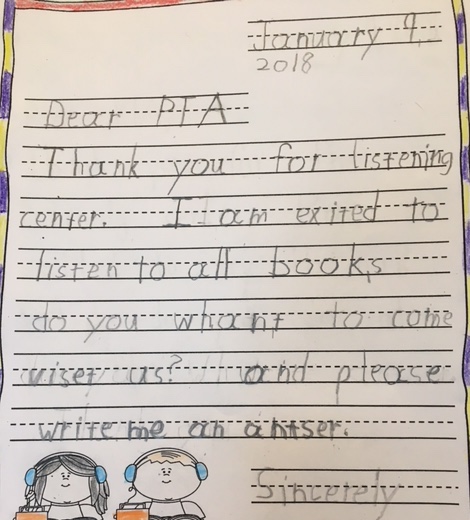 January 9,
2018
Dear PTA
Thank you for listening
center. I am exited to
listen to all books
do you whant to come
viset us? and please
write me an antser.
Sincerely